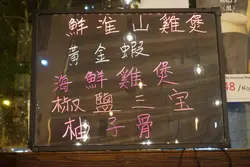 鮮淮山雞煲
黃金蝦
海鮮雞煲
椒鹽三宝
柚子骨